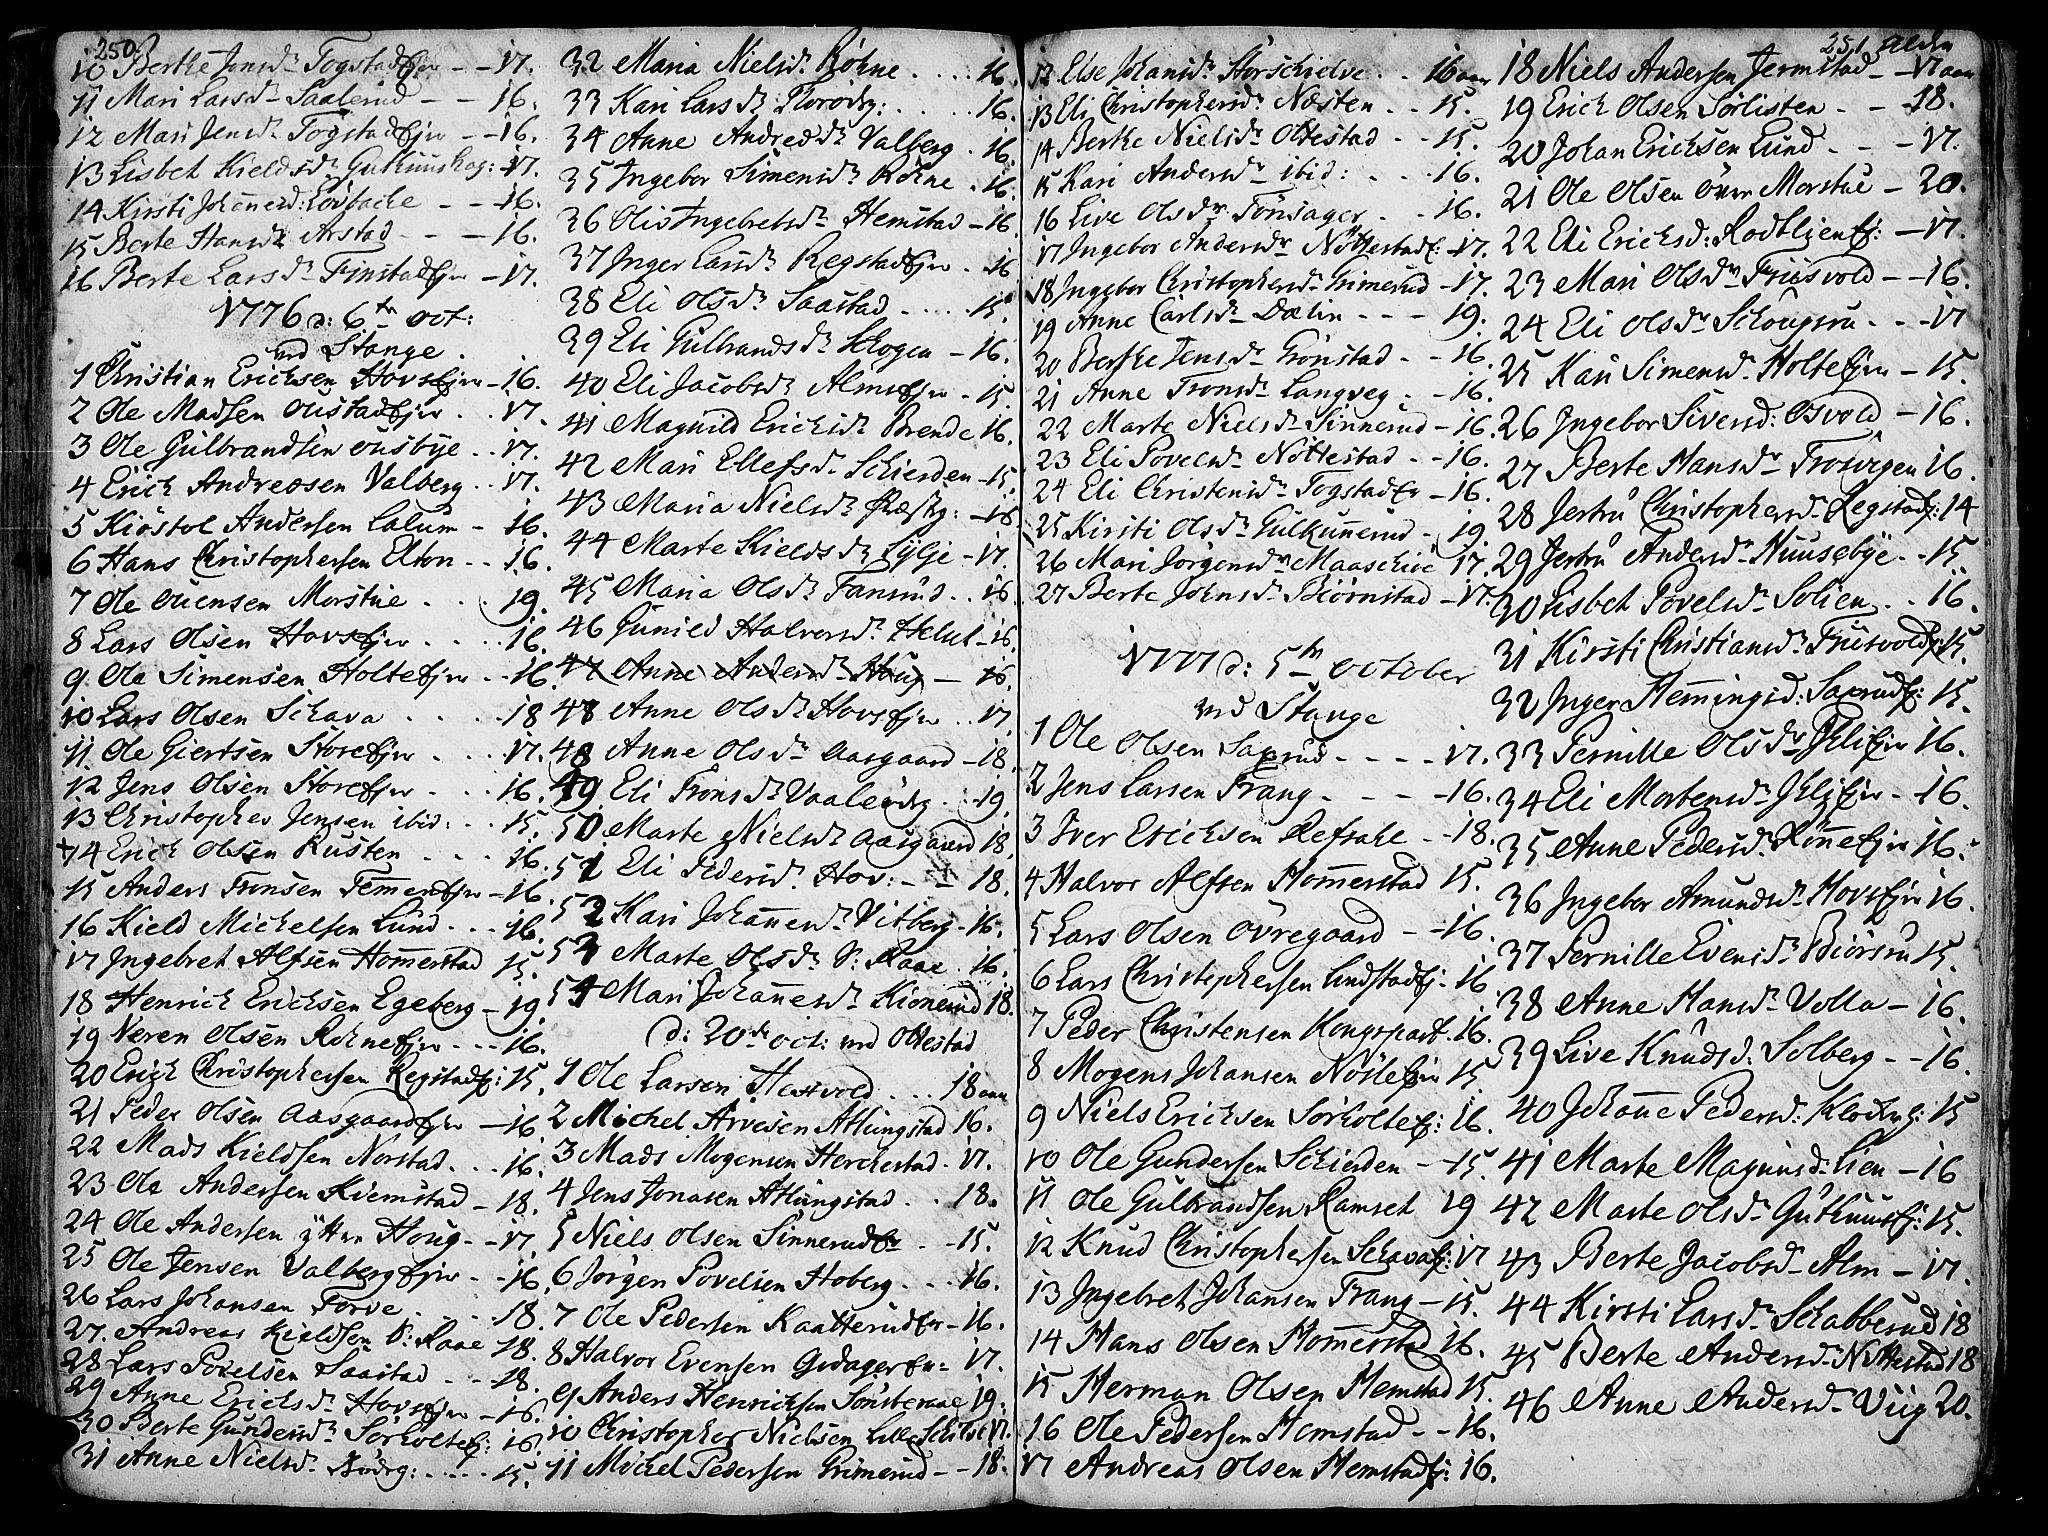 250.
10 Berthe Jonsdr Togstadejer - - 17.
11 Mari Larsdr Saalerud - - 16.
12 Mari Jensdr Togstadejer - - 16.
13 Lisbet Kieldsdr Guthuushag: - 17.
14 Kirsti Johanesd: Lövbacke - - 16.
15 Berte Hansdr Arstad - - - 16.
16 Berte Larsdr Finstadejer - 17.
1776 d: 6te Oct:
ved Stange.
1 Christian Erichsen Hovsejer - 16.
2 Ole Madsen Oustadejer . . 17.
3 Ole Gulbrandsen Ousbye . . 17.
4 Erich Andreasen Valberg . . 17.
5 Kiöstol Andersen Lalum - 16.
6 Hans Christophersen Elton . . 16.
7 Ole Ouensen Morstue . . . 19.
8 Lars Olsen Hovsejer . . . 16.
9. Ole Simensen Holteejer . . 16.
10 Lars Olsen Schava . . . . 18
11. Ole Giertsen Storeejer . . . 17.
12 Jens Olsen Storeejer . . . 16.
13 Christopher Jensen ibid: . . 15.
14 Erich Olsen Rusten . . . 16.
15 Anders Tronsen Temmerejer - 16.
16 Kield Michelsen Lund . . . 16.
17 Ingebret Alfsen Homerstad 15.
18 Henrich Erichsen Egeberg - 19.
19 Neren Olsen Rohneejer . . - 16.
20 Erich Christophersen Regstadej: 15.
21 Peder Olsen Aasgaardejer - 16
22 Mads Kieldsen Norstad . . . 16.
23 Ole Andersen Kiemstad - 18.
24 Ole Andersen ytter Houg - - 17.
25 Ole Jensen Valbergejer - - 16.
26 Lars Johansen Torve . . - 18.
27. Andreas Kieldsen V: Raae 18.
28 Lars Povelsen Saastad . . - 18.
29 Anne Erichsdr Hovsejer - 16.
30 Berte Gundersdr Sörholteej: 16.
31 Anne Nielsdr Södrg: . . . . 15.
32 Maria Nielsdr Röhne . . . . 16.
33 Kari Larsdr Horödrg: . . . . 16.
34 Anne Andreædr Valberg . 16.
35 Ingebor Simensdr Röhne . 16.
36 Olis Ingebretsdr Hemstad - 16.
37 Inger Larsdr Regstadejer . 16
38 Eli Olsdr Saastad . . . . . 15.
39 Eli Gulbrandsdr Schogen - 16.
40 Eli Jacobsdr Almsejer - 15
41 Magnild Erichsdr Brende 16.
42 Mari Ellefsdr Schierden - 15.
43 Maria Nielsdr - 15.
44 Marte Kieldsdr Lylje - 17.
45 Maria Olsdr Fansrud . . 16.
46 Gunild Halvorsdr - 16.
47 Anne Andersdr Houg - 16.
48 Anne Olsdr Hovsejer . . 17.
48 Anne Olsdr Aasgaard - 18.
49 Eli Tronsdr Vaalerdrg . . 19.
50 Marte Nielsdr Aasgaard 18.
51 Eli Pedersdr. Hov: - - 18.
52 Kari Johanesdr Vitberg - 16.
53 Marte Olsdr V: Raae . 16.
54 Mari Johanesdr Kionerud 18.
d: 20de Oct: ved Ottestad
1 Ole Larsen Hestvold . . . 18 aar
2 Michel Arvesen Atlungstad 16.
3 Mads Mogensen Herckestad . 17.
4 Jens Jonasen Atlungstad . . 18.
5 Niels Olsen Sinnerudejr . - 15.
6 Jörgen Povelsen Hoberg . . . 16.
7 Ole Pedersen Kaatterudejr - 16.
8 Halvor Evensen Gidagerejr - 17.
9 Anders Henrichsen Sönsteraae 19.
10 Christopher Nielsen Lille 17.
11 Michel Pedersen Grimerud - - 18.
251 Alder
12 Else Johansdr Storschielve . . 16 aar
13 Eli Christophersdr Næsten . . 15.
14 Berthe Nielsdr Ottestad - - 15.
15 Kari Andersdr ibid: . . . 16.
16 Live Olsdr Tönsager . . 16.
17 Ingebor Andersdr Nöttestadej: 17.
18 Ingebor Christophersdr Grimerud - 17.
19 Anne Carlsdr Dælin - - - 19.
20 Berthe Jensdr Grönstad - - 16.
21 Anne Tronsdr Langveg . - 16.
22 Marte Nielsdr Sinnerud - 16.
23 Eli Povelsdr Nöttestad - - 16.
24 Eli Christensdr Togstadejr - 16.
25 Kirsti Olsdr Gulkunerud - 19.
26 Mari Jörgensdr Maaschiöe 17.
27 Berte Johnsdr Biörnstad - 17.
1777 d: 5te October
ved Stange
1 Ole Olsen Saxrud - - - - 17.
2 Jens Larsen Frang - - - 16.
3 Iver Erichsen Refsahe - - 18.
4 Halvor Alfsen Homerstad 15.
5 Lars Olsen Övregaard - - 16.
6 Lars Christophersen Lindstadej: 16.
7 Peder Christensen Kongspart. 16.
8 Mogens Johansen Nösleejer 15.
9 Niels Erichsen Sörholteej: 16.
10 Ole Gundersen Schierden - - 15.
11 Ole Gulbrandsen Ramset 19
12 Knud Christophersen Schavaej: 17
13 Ingebret Johansen Frang - 15.
14 Hans Olsen Homerstad 16.
15 Herman Olsen Hemstad 15.
16 Ole Pedersen Hemstad - - 16.
17 Andreas Olsen Hemstadej: 16.
18 Niels Andersen Jermstad - - 17 aar
19 Erich Olsen Sörlisten - - - 18.
20 Johan Erichsen Lund - - - 17.
21 Ole Olsen över Morstue - 20.
22 Eli Erichsd: Rodtlienej: - 17.
23 Mari Olsdr Friisvold - - 16.
24 Eli Olsdr Schougsru - - - 17
25 Kari Simensdr Holteejer - 15.
26 Ingebor Siversd: Osvold - 16.
27 Berte Hansdr Frosvigen 16.
28 Jertru Christophersdr Regstadej: 14
29 Jertru Andersdr Nuusebye - - 15.
30 Lisbet Povelsdr Solien . . 16.
31 Kirsti Christiansdr Friisvoldej: 15.
32 Inger Hemingsd: Saxrudej: 15.
33 Pernille Olsdr 16.
34 Eli Mortensdr - 16.
35 Anne Pedersdr Röneejer 16.
36 Ingebor Amundsdr Hovsejer 16.
37 Pernille Evensdr Biörsru 15.
38 Anne Hansdr Volla - 16.
39 Live Knudsd. Solberg - - 16.
40 Johanne Pedersd: 15
41 Marte Magnusd: Lien - 16
42 Marte Olsdr Guthuusej: 15.
43 Berte Jacobsd - Alm - 17.
44 Kirsti Larsdr Schabberud 18
45 Berte Andersdr Nöttestad 18
46 Anne Andersdr Viig 20.